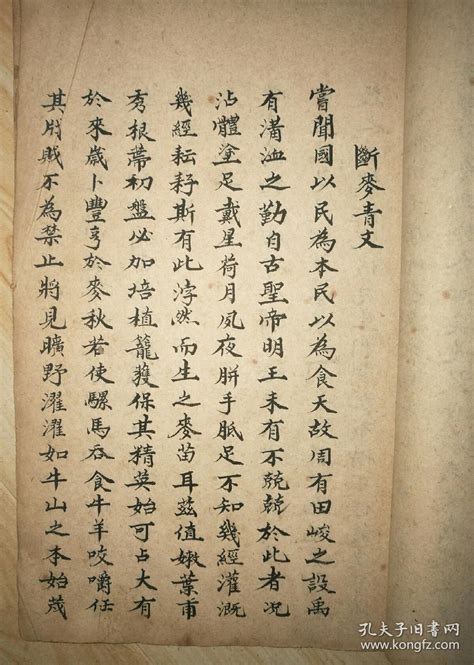 斷麥青文
嘗聞國以民為本民以為食天故周有田峻之設禹
有溝洫之勤自古聖帝明王未有不兢兢於此者况
沾體塗足戴星荷月夙夜胼手胝足不知幾經灌溉
幾經耘耔斯有此浡然而生之麥苗耳茲值嫩葉甫
秀根蒂初盤必加培植籠獲保其精英始可占大有
於來歲卜豐亨於麥秋若使騾馬吞食牛羊咬嚼任
其戕賊不為禁止將見曠野濯濯如牛山之木始茂
孔夫子旧書网
www.kongfz.com